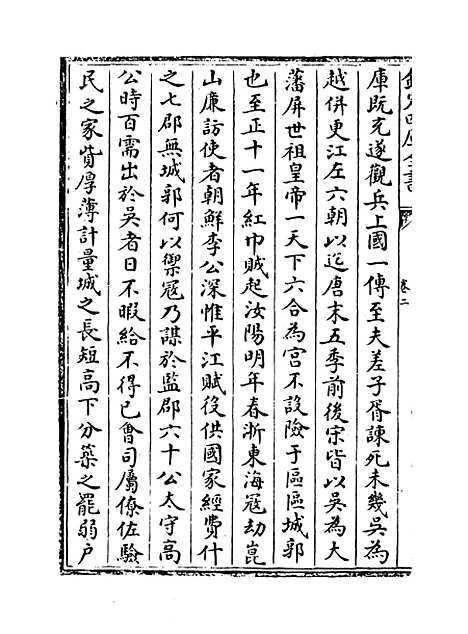 欽定四庫全書
卷二
庫既充遂觀兵上國一傳至夫差子胥諫死未幾吳為
越併更江左六朝以迄唐末五季前後宋皆以吳為大
藩屏世祖皇帝一天下六合為宮不設險于區區城郭
也至正十一年紅巾賊起汝陽明年春浙東海冦劫崑
山廉訪使者朝鮮李公深惟平江賦役供國家經費什
之七郡無城郭何以禦冦乃謀於監郡六十公太守高
公時百需出於吳者日不暇給不得已會司屬僚佐驗
民之家貲厚薄計量城之長短高下分築之罷弱户